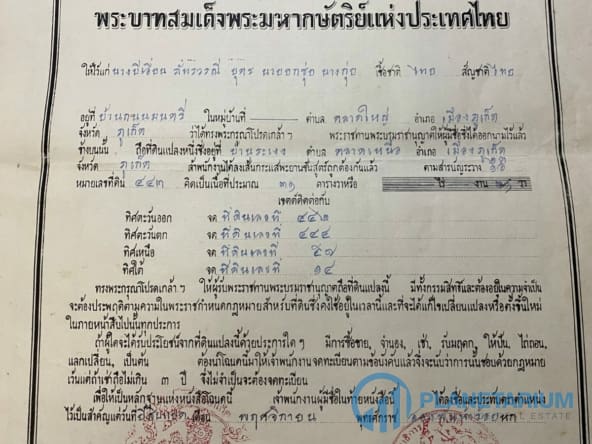 พระบาทสมเด็จพระมหากษัตริย์แห่งประเทศไทย
ให้ไว้แก่ นางยี่เซื่อน ภัทรวรณี บุตร นาย นาง เชื้อชาติ ไทย สัญชาติ ไทย
อยู่ที่ บ้านถนนมนตรี ในหมู่บ้านที่ ตำบล ตลาดใหญ่ อำเภอ เมืองภูเก็ต
จังหวัด ภูเก็ต ว่าได้ทรงพระกรุณาโปรดเกล้า ๆ พระราชทานพระบรมราชานุญาตให้ผู้มีชื่อซึ่งได้ออกนามไว้แล้ว
ข้างบนนั้น ถือที่ดินแปลงหนึ่งซึ่งอยู่ที่ บ้านระแง ตำบล ตลาดเหนือ อำเภอ เมืองภูเก็ต
จังหวัด ภูเก็ต เจ้าพนักงานได้ลงเส้นกระแสพะยานชันสูตรถูกต้องกันแล้ว ตามสารบัญระวาง
หมายเลขที่ดิน ๔๔๓ คิดเป็นเนื้อที่ประมาณ ๓๑ ตารางวาหรือ ไร่ งาน วา
เขตต์ติดต่อกับ
ทิศตะวันออก จด ที่ดินเลขที่ ๔๔๒
ทิศตะวันตก จด ที่ดินเลขที่ ๔๔๔
ทิศเหนือ จด ที่ดินเลขที่ ๕๗
ทิศใต้ จด ที่ดินเลขที่ ๑๔
ทรงพระกรุณาโปรดเกล้า ๆ ให้ผู้รับพระราชทานพระบรมราชานุญาตถือที่ดินแปลงนี้ มีกรรมสิทธิ์และต้องอยู่ในความจำเป็น
จะต้องประพฤติตามความในพระราชกำหนดกฎหมายสำหรับที่ดินซึ่งคงใช้อยู่ในเวลานี้และที่จะได้แก้ไขเปลี่ยนแปลงหรือตั้งขึ้นใหม่
ในภายหน้าสืบไปนั้นทุกประการ
ถ้าผู้ใดจะได้รับประโยชน์จากที่ดินแปลงนี้ด้วยประการใด ๆ มีการซื้อขาย, จำนอง, เช่า, รับมฤดก, ให้ปัน, ไถ่ถอน,
แลกเปลี่ยน, เป็นต้น ต้องนำโฉนดนี้มาให้เจ้าพนักงานจดทะเบียนตามข้อบังคับแล้วจึ่งจะนับว่าการนั้นชอบด้วยกฎหมาย
เว้นแต่ถ้าเช่าถือไม่เกิน ๓ ปี จึ่งไม่จำเป็นจะต้องจดทะเบียน
เพื่อให้เป็นหลักฐานแห่งหนังสือโฉนดนี้ เจ้าพนักงานผู้มีชื่อในท้ายหนังสือนี้ ได้ลงชื่อและประทับตราตำแหน่ง
ไว้เป็นสำคัญแต่วันที่ เดือน พฤศจิกายน พุทธศักราช
PLANETARIUM
REAL ESTATE